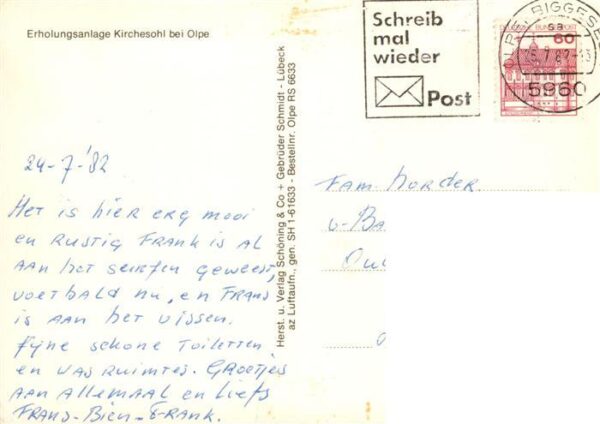 Erholungsanlage Kirchesohl bei Olpe
Schreib
mal
wieder
Post
60
5960
24-7-'82
Het is hier erg mooi
en rustig Frank is al
aan het surfen geweest,
voetbald nu, en Frans
is aan het vissen.
Fijne schone toiletten
en wasruimtes. Groetjes
aan allemaal en liefs
Frans-Bien-Frank.
Herst. u. Verlag Schöning & Co + Gebrüder Schmidt - Lübeck
az Luftaufn., gen. SH 1-61633 - Bestellnr. Olpe RS 6633
Fam. Horder
v-Ba
Ou